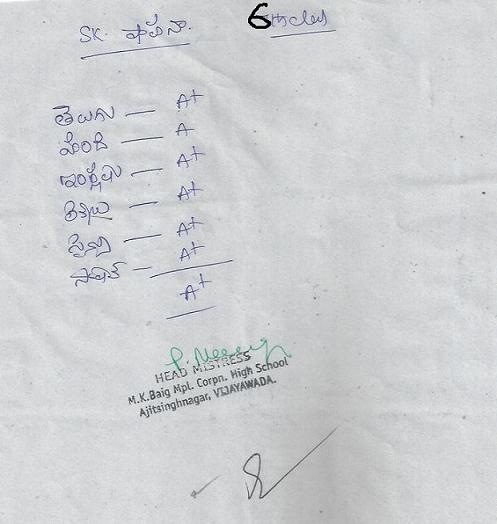 SK. షాహీనా. 6th class
తెలుగు — A+
హింది — A
ఇంగ్లీషు — A+
లెక్కలు — A+
సైన్సు — A+
సోషల్ — A+
A+
HEAD MISTRESS
M.K.Baig Mpl. Corpn. High School
Ajitsinghnagar, VIJAYAWADA.